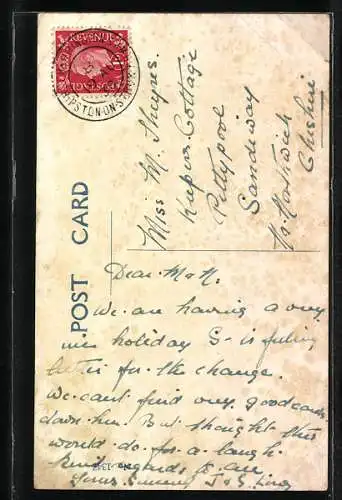 POSTAGE
SHIPSTON-ON-STOUR
POST CARD
Miss M.
Cottage
Pettypool
Sandiway
Nr. Northwich
Cheshire
Dear M & N.
We are having a very
nice holiday G- is feeling
better for the change.
We cant find very good cards
down here. But thought this
would do for a laugh.
Kind regards to all
Yours Sincerely J & G.